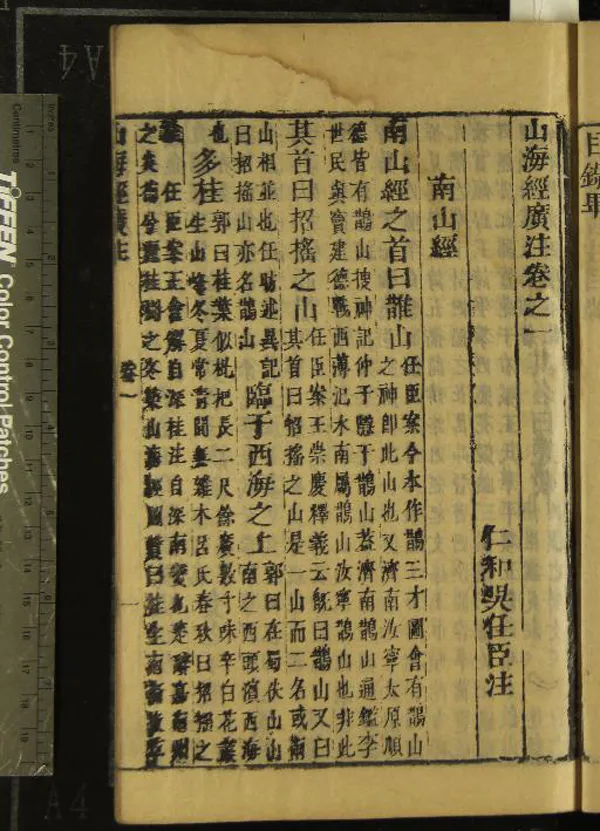 山海經廣注卷之一
仁和吳任臣注
南山經
南山經之首曰䧿山任臣案今本作鵲三才圖會有鵲山
之神卽此山也又濟南汝寧太原順
德皆有鵲山搜神記仲于隱于鵲山葢濟南鵲山通鑑李
世民與竇建德戰西薄汜水南屬鵲山汝寧鵲山也非此
其首曰招搖之山任臣案王崇慶釋義云旣曰鵲山又曰
其首曰招搖之山是一山而二名或兩
山相並也任昉述異記
曰招搖山亦名鵲山臨于西海之上郭曰在蜀伏山山
南之西頭濱西海
也多桂郭曰桂葉似枇杷長二尺餘廣數寸味辛白花叢
生山峰冬夏常青間無雜木呂氏春秋曰招搖之
桂任臣案王會解自深桂注自深南蠻也
山海經廣注
卷一
一
目錄畢
TIFFEN Color Control Patches
Centimetres
Inches
A4
A4